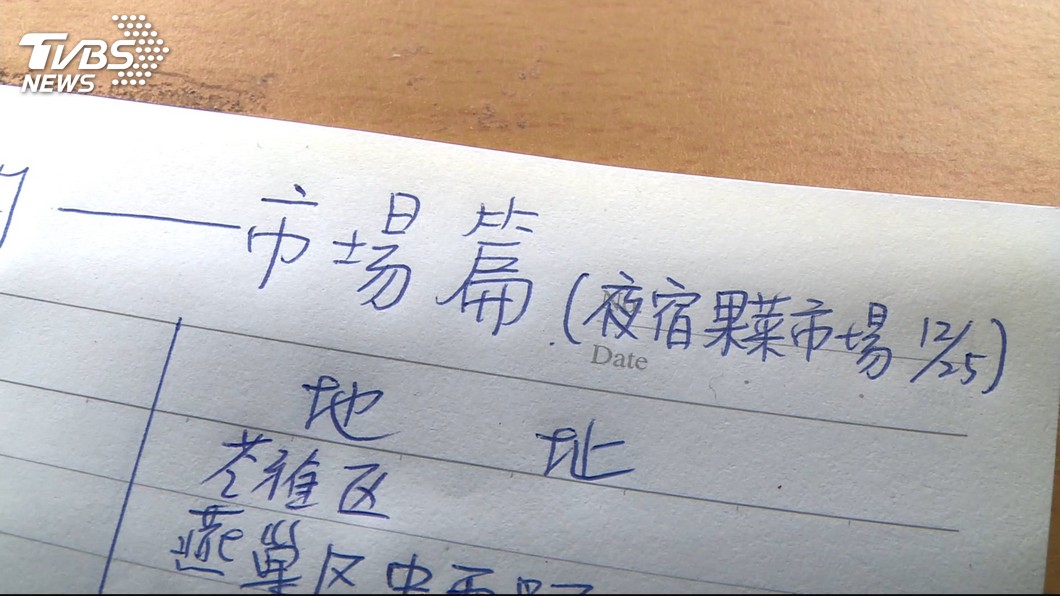 TVBS
NEWS
市場篇(夜宿果菜市場 12/25)
Date
地 址
苓雅区
燕巢区中西